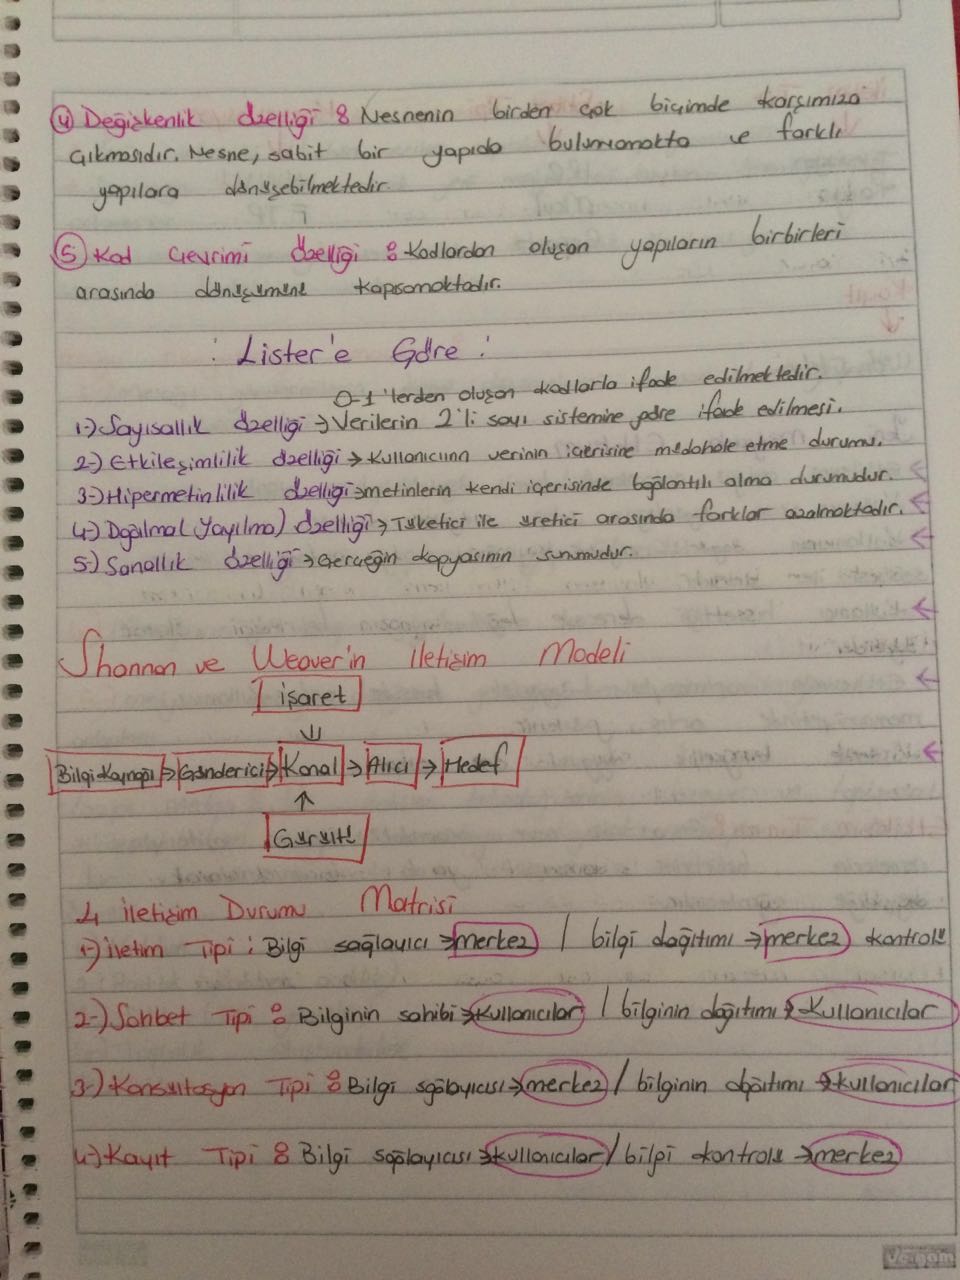 4 Değişkenlik özelliği : Nesnenin birden çok biçimde karşımıza
çıkmasıdır. Nesne, sabit bir yapıda bulunmamakta ve farklı
yapılara dönüşebilmektedir.
5 Kod Çevrimi özelliği : Kodlardan oluşan yapıların birbirleri
arasında dönüşümünü kapsamaktadır.
: Lister'e Göre :
0-1'lerden oluşan kodlarla ifade edilmektedir.
1-) Sayısallık özelliği → Verilerin 2'li sayı sistemine göre ifade edilmesi.
2-) Etkileşimlilik özelliği → Kullanıcının verinin içerisine müdahale etme durumu.
3-) Hipermetinlilik özelliği → metinlerin kendi içerisinde bağlantılı olma durumudur.
4-) Dağılma (Yayılma) özelliği → Tüketici ile üretici arasında farklar azalmaktadır.
5-) Sanallık özelliği → Gerçeğin kopyasının sunumudur.
Shannon ve Weaver'in İletişim Modeli
İşaret
Bilgi Kaynağı → Gönderici → Kanal → Alıcı → Hedef
Gürültü
4 İletişim Durumu Matrisi
1-) İletim Tipi : Bilgi sağlayıcı → merkez / bilgi dağıtımı → merkez kontrolü
2-) Sohbet Tipi : Bilginin sahibi → Kullanıcılar / bilginin dağıtımı → Kullanıcılar
3-) Konsültasyon Tipi : Bilgi sağlayıcısı → merkez / bilginin dağıtımı → kullanıcılar
4-) Kayıt Tipi : Bilgi sağlayıcısı → kullanıcılar / bilgi kontrolü → merkez